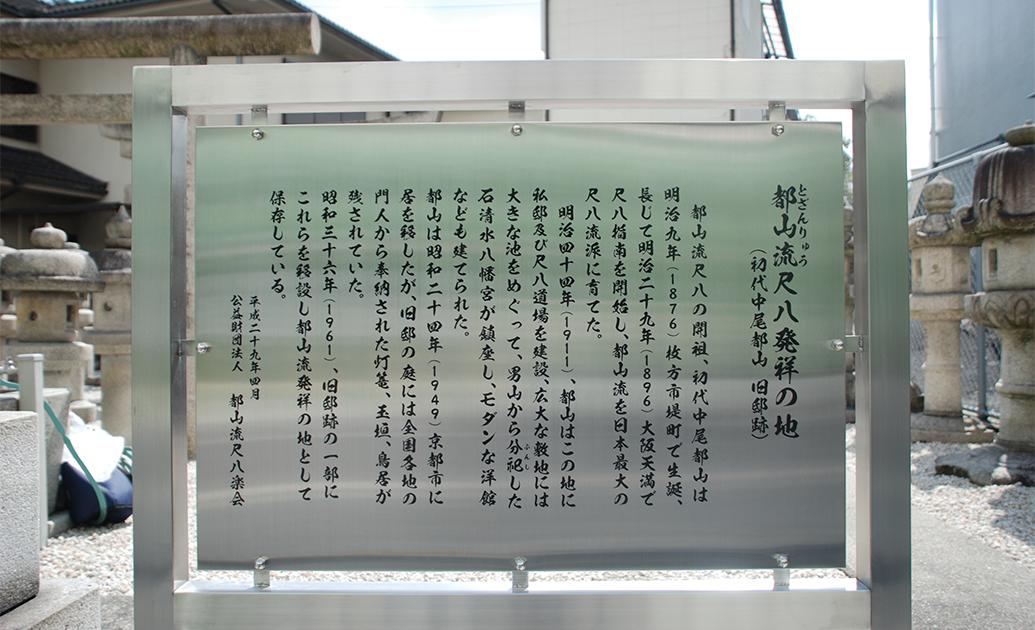 とざんりゅう
都山流尺八発祥の地
（初代中尾都山　旧邸跡）
都山流尺八の開祖、初代中尾都山は
明治九年（1876）枚方市堤町で生誕、
長じて明治二十九年（1896）大阪天満で
尺八指南を開始し、都山流を日本最大の
尺八流派に育てた。
明治四十四年（1911）、都山はこの地に
私邸及び尺八道場を建設、広大な敷地には
大きな池をめぐって、男山から分祀した
ぶんし
石清水八幡宮が鎮座し、モダンな洋館
なども建てられた。
都山は昭和二十四年（1949）京都市に
居を移したが、旧邸の庭には全国各地の
門人から奉納された灯篭、玉垣、鳥居が
残されていた。
昭和三十六年（1961）、旧邸跡の一部に
これらを移設し都山流発祥の地として
保存している。
平成二十九年四月
公益財団法人　都山流尺八楽会